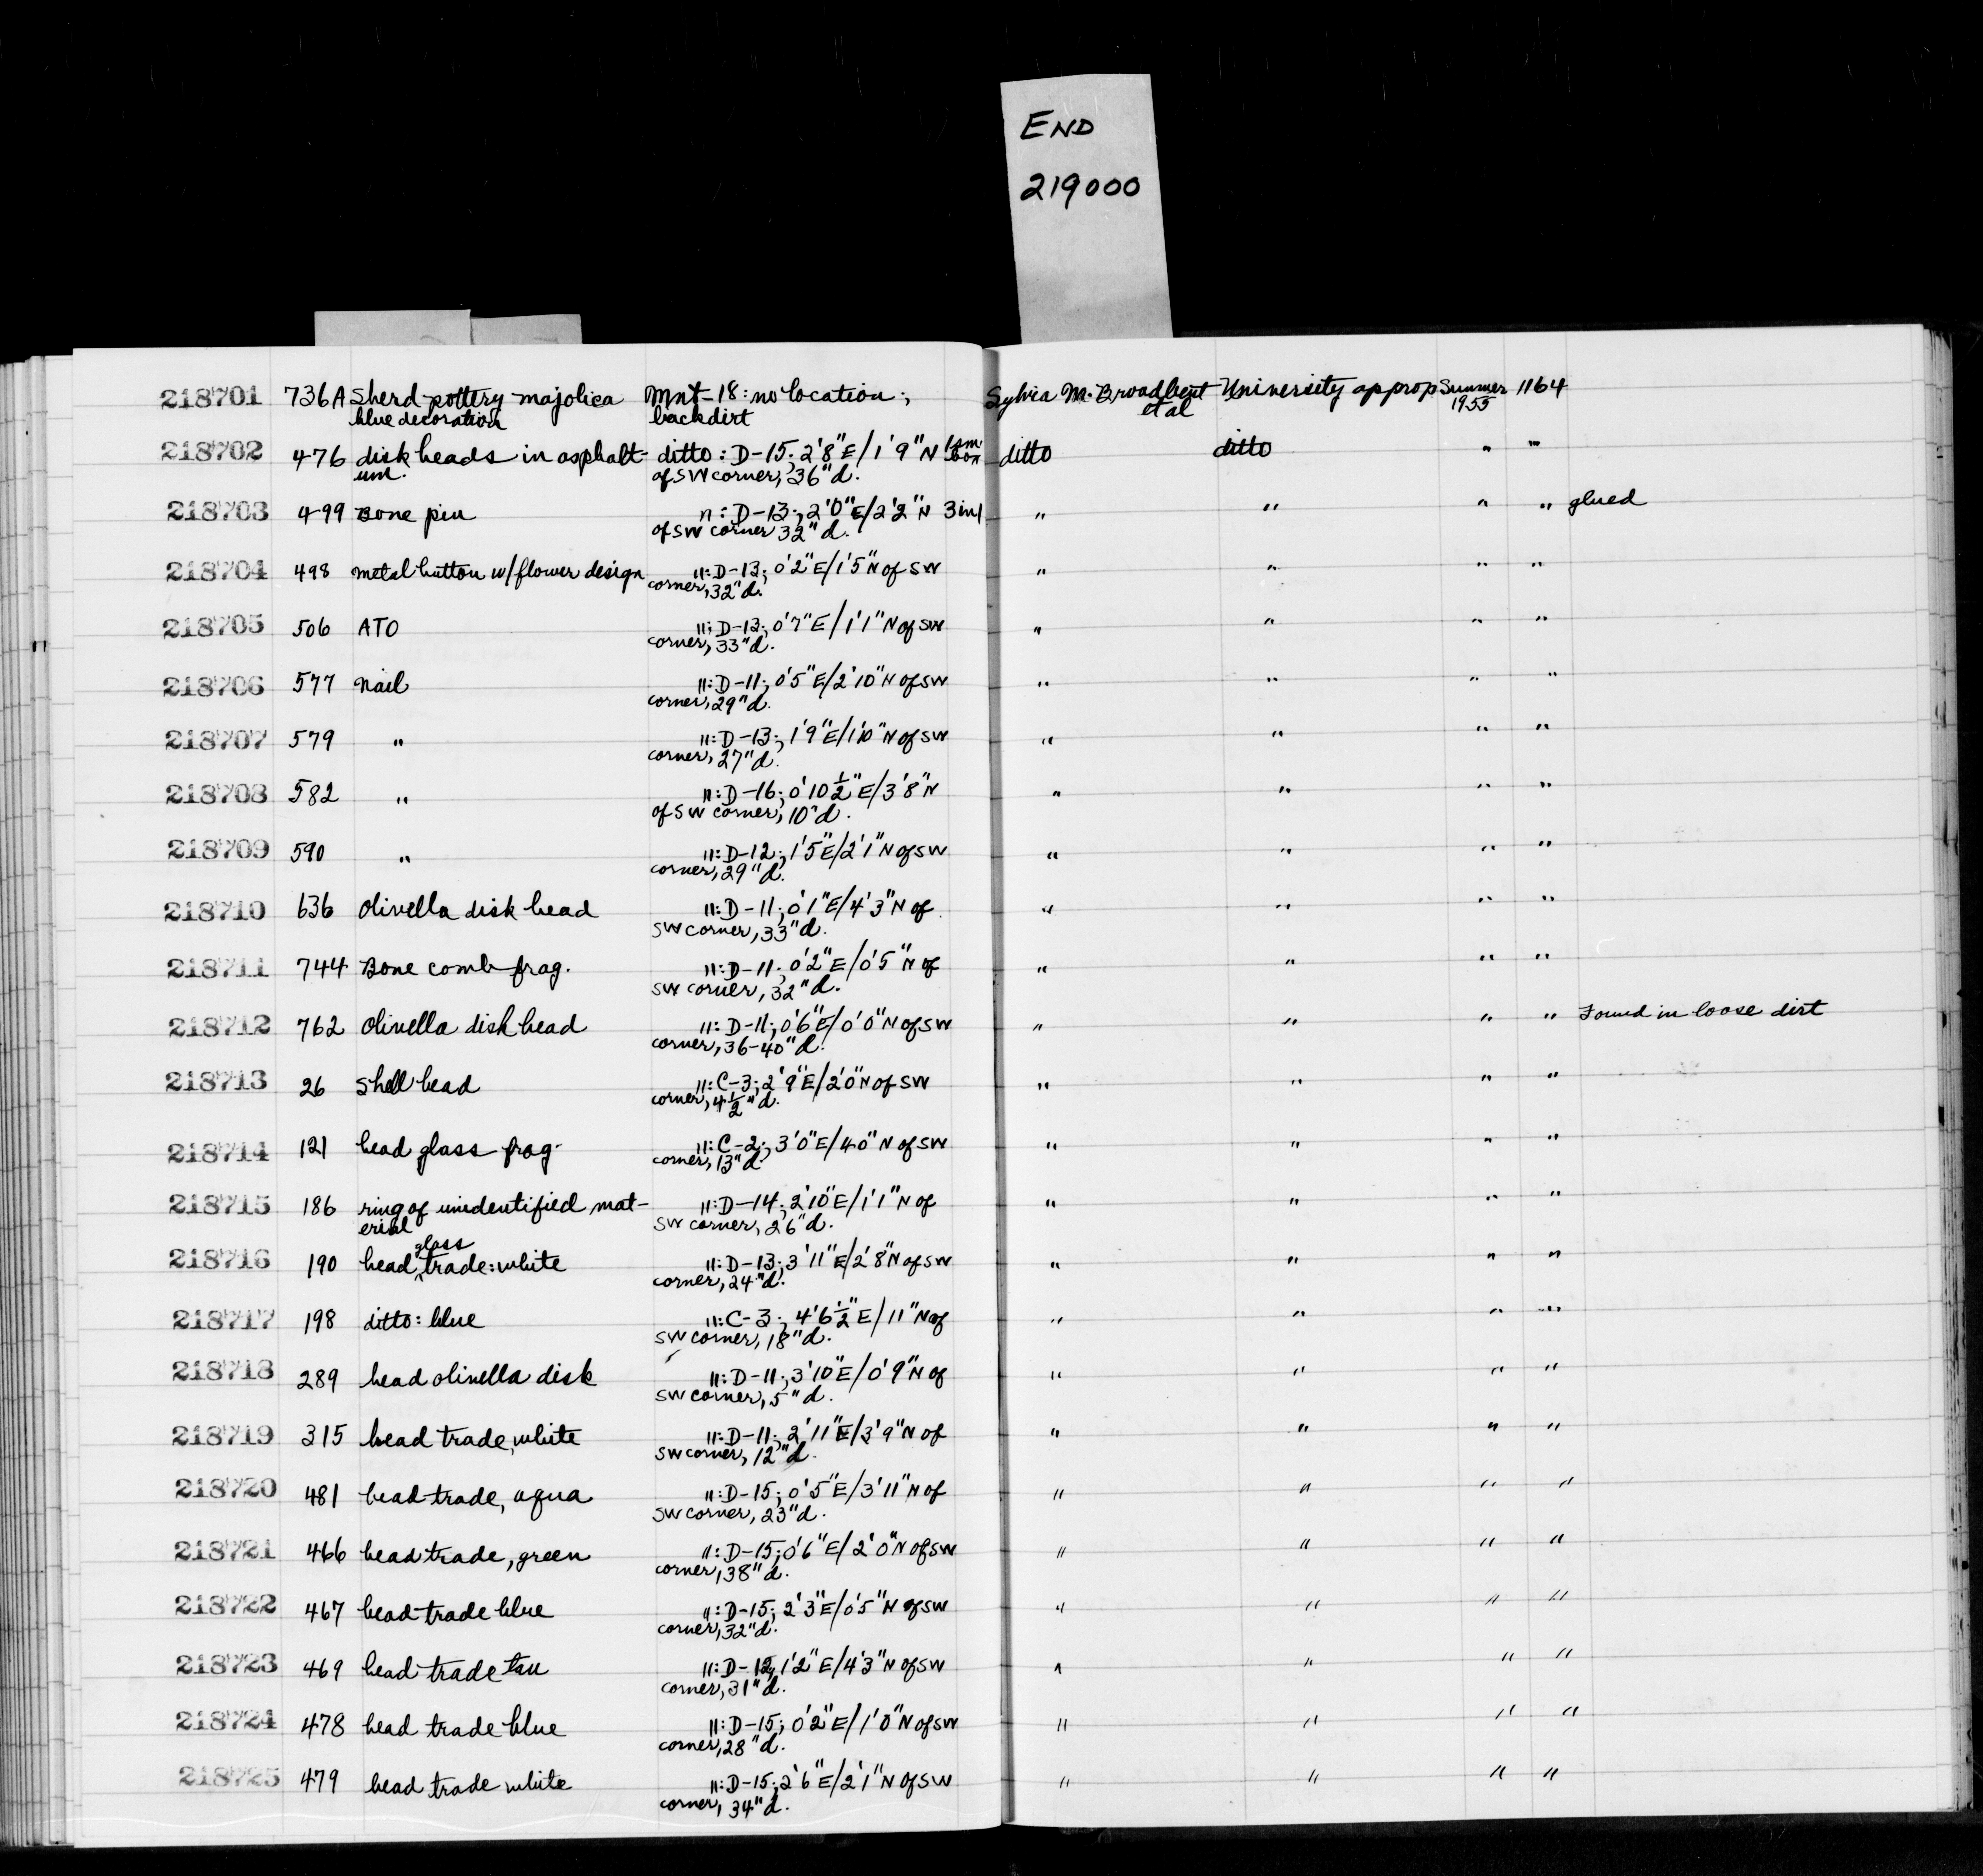 END
219000
218701 736A Sherd pottery majolica Mnt-18: no location; Sylvia M. Broadbent University approp Summer 1164
blue decoration backdirt et al 1955
218702 476 disk beads in asphalt- ditto: D-15; 2'8"E/1'9"N 1 sm. box ditto ditto " "
um. of SW corner, 36"d.
218703 499 Bone pin ": D-13; 2'0"E/2'2"N 3 in 1 " " " " glued
of SW corner 32"d.
218704 498 metal button w/flower design ": D-13; 0'2"E/1'5"N of SW " " " "
corner, 32"d.
218705 506 ATO ": D-13; 0'7"E/1'1"N of SW " " " "
corner, 33"d.
218706 577 nail ": D-11; 0'5"E/2'10"N of SW " " " "
corner, 29"d.
218707 579 " ": D-13; 1'9"E/1'10"N of SW " " " "
corner, 27"d.
218708 582 " ": D-16; 0'10½"E/3'8"N " " " "
of SW corner, 10"d.
218709 590 " ": D-12; 1'5"E/2'1"N of SW " " " "
corner, 29"d.
218710 636 Olivella disk bead ": D-11; 0'1"E/4'3"N of " " " "
SW corner, 33"d.
218711 744 Bone comb frag. ": D-11; 0'2"E/0'5"N of " " " "
SW corner, 32"d.
218712 762 Olivella disk bead ": D-11; 0'6"E/0'0"N of SW " " " " Found in loose dirt
corner, 36-40"d.
218713 26 Shell bead ": C-3; 2'9"E/2'0"N of SW " " " "
corner, 4½"d.
218714 121 bead glass frag. ": C-2; 3'0"E/4'0"N of SW " " " "
corner, 13"d.
218715 186 ring of unidentified mat- ": D-14; 2'10"E/1'1"N of " " " "
erial SW corner, 26"d.
218716 190 bead glass trade: white ": D-13; 3'11"E/2'8"N of SW " " " "
corner, 24"d.
218717 198 ditto: blue ": C-3; 4'6½"E/11"N of " " " "
SW corner, 18"d.
218718 289 bead olivella disk ": D-11; 3'10"E/0'9"N of " " " "
SW corner, 5"d.
218719 315 bead trade, white ": D-11; 2'11"E/3'9"N of " " " "
SW corner, 12"d.
218720 481 bead trade, aqua ": D-15; 0'5"E/3'11"N of " " " "
SW corner, 23"d.
218721 466 bead trade, green ": D-15; 0'6"E/2'0"N of SW " " " "
corner, 38"d.
218722 467 bead trade blue ": D-15; 2'3"E/0'5"N of SW " " " "
corner, 32"d.
218723 469 bead trade tan ": D-12; 1'2"E/4'3"N of SW " " " "
corner, 31"d.
218724 478 bead trade blue ": D-15; 0'2"E/1'0"N of SW " " " "
corner, 28"d.
218725 479 bead trade white ": D-15; 2'6"E/2'1"N of SW " " " "
corner, 34"d.